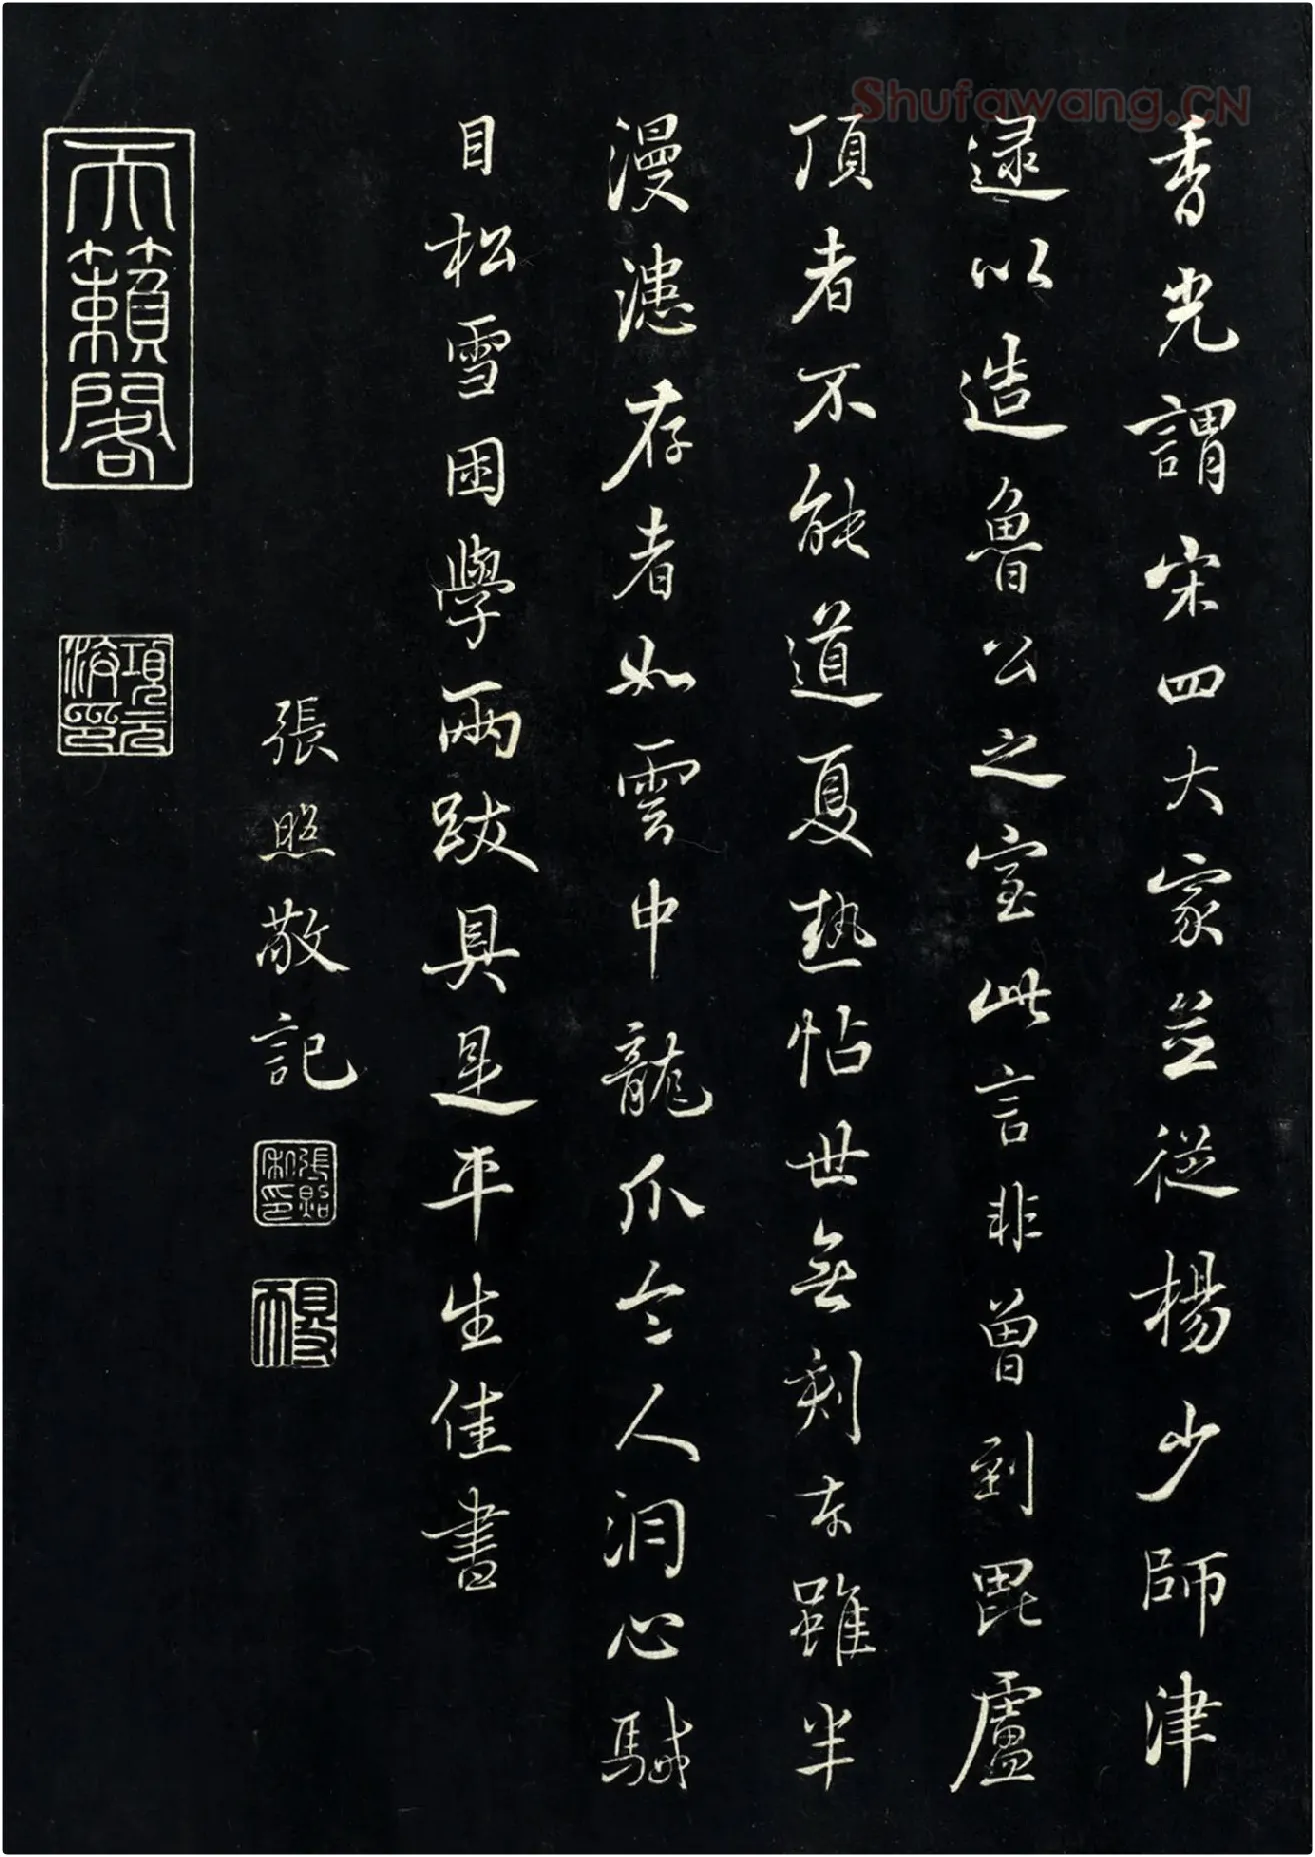 Shufawang.CN
香光謂宋四大家並從楊少師津
逮以造魯公之室此言非曾到毘盧
頂者不能道夏熱帖世無刻本雖半
漫漶存者如雲中龍爪令人洞心駴
目松雪困學兩跋具是平生佳書
張照敬記
張照私印
得天
天籟閣
項元汴印